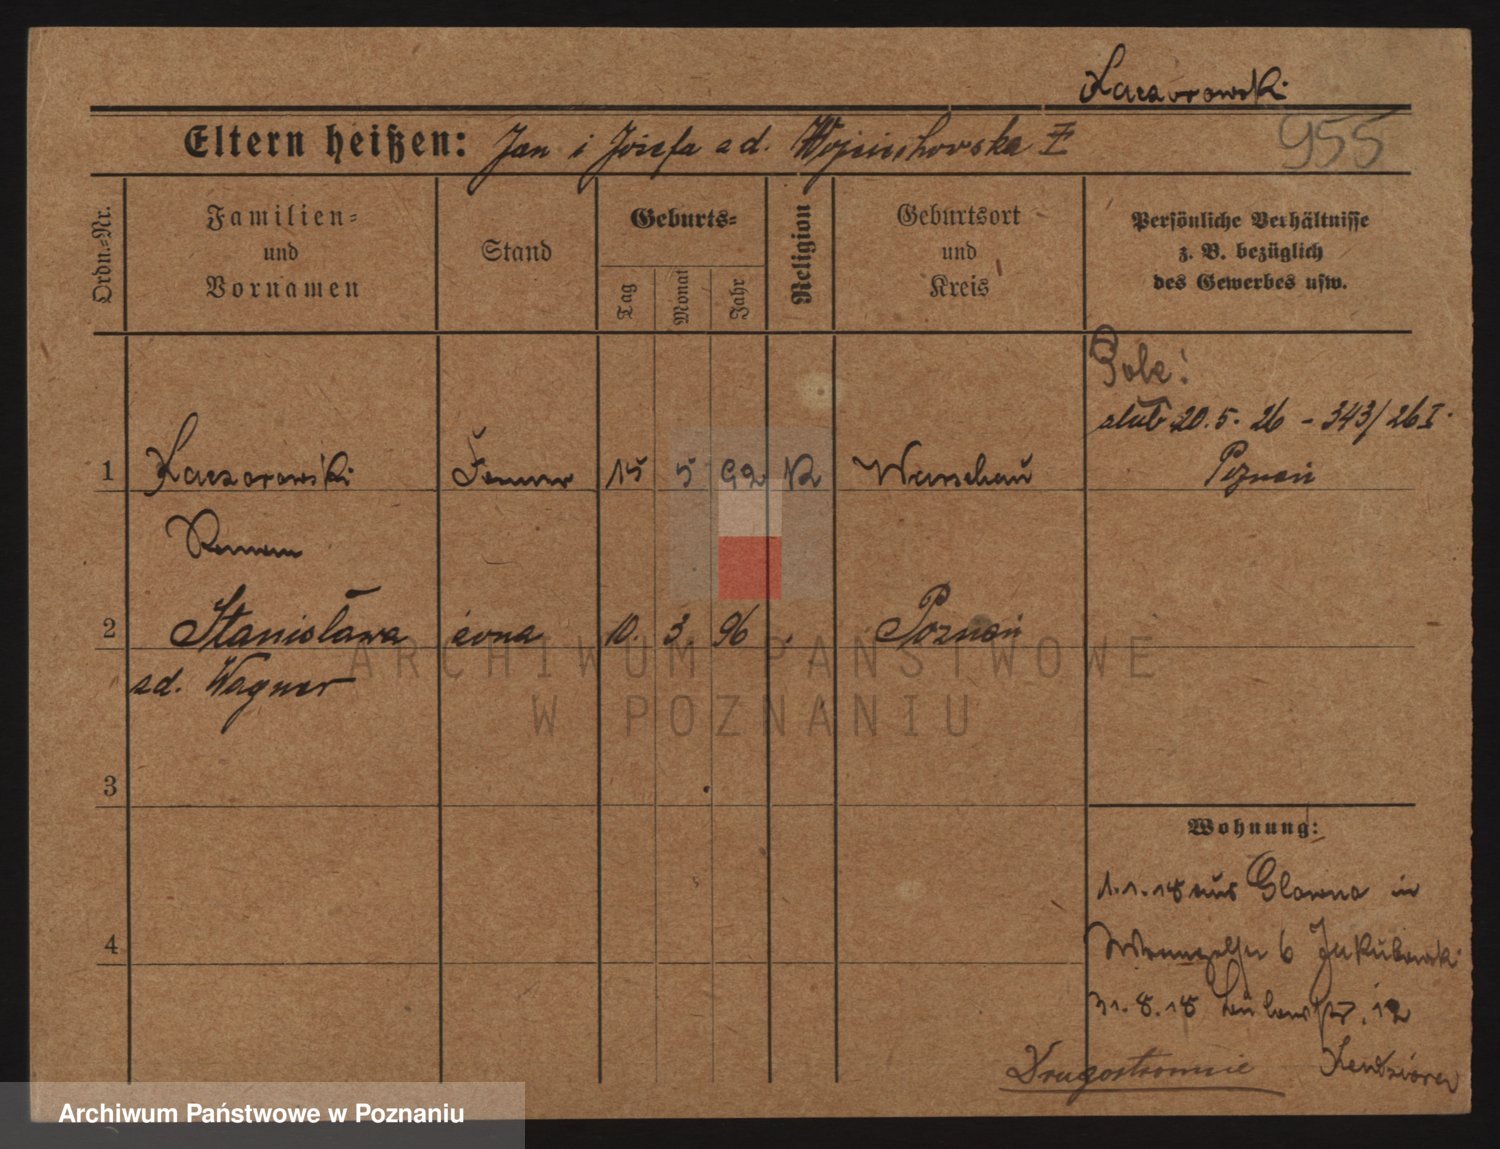 Kaczorowski
Eltern heißen: Jan i Józefa z d. Wojciechowska
955
Ordn.-Nr.
Familien-
und
Vornamen
Stand
Geburts-
Tag
Monat
Jahr
Religion
Geburtsort
und
Kreis
Persönliche Verhältnisse
z. B. bezüglich
des Gewerbes usw.
Pole!
ślub 20.5.26 - 343/26 I.
Poznań
1 Kaczorowski 15 5 92 K Warschau
Roman
2 Stanisława żona 10. 3. 96 Poznań
zd. Wagner
3
4
Wohnung:
1.1.18 aus Glowno in
6 Jakubowski
31.8.18 12
Drugostronnie
ARCHIWUM PAŃSTWOWE
W POZNANIU
Archiwum Państwowe w Poznaniu